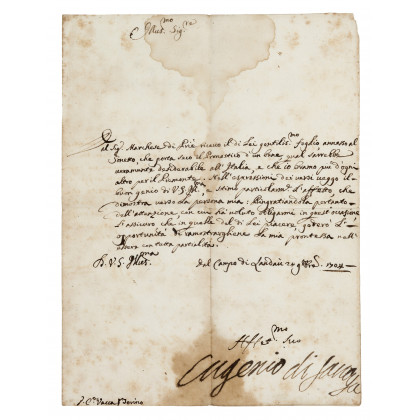 Illus.mo Sig.re
Dal Sig. Marchese di Prié ricevo il di Lei gentilis.mo foglio annesso al
Sonetto, che porta seco il Pronostico d'un bene qual sarebbe
veramente desiderabile all' Italia, e che io bramo più d'ogni
altro per il Piemonte. Nell' espressione dei versi veggo il
buon genio di V.S. Ill.ma e stimo particolarm.te l'affetto, che
dimostra verso la persona mia: Ringratiandola pertanto
dell'attenzione, con cui hà voluto obligarmi in questa occasione
L'assicuro che in quelle del di Lei piacere, goderò l'
opportunità di rimostrarghene la mia prontezza nell'
essere con tutta partialità.
D. V. S. Illus.ma
dal Campo di Landau 20 9bre 1704
Aff.mo Suo
Eugenio di Savoya
S.r Co. Vacca Torino